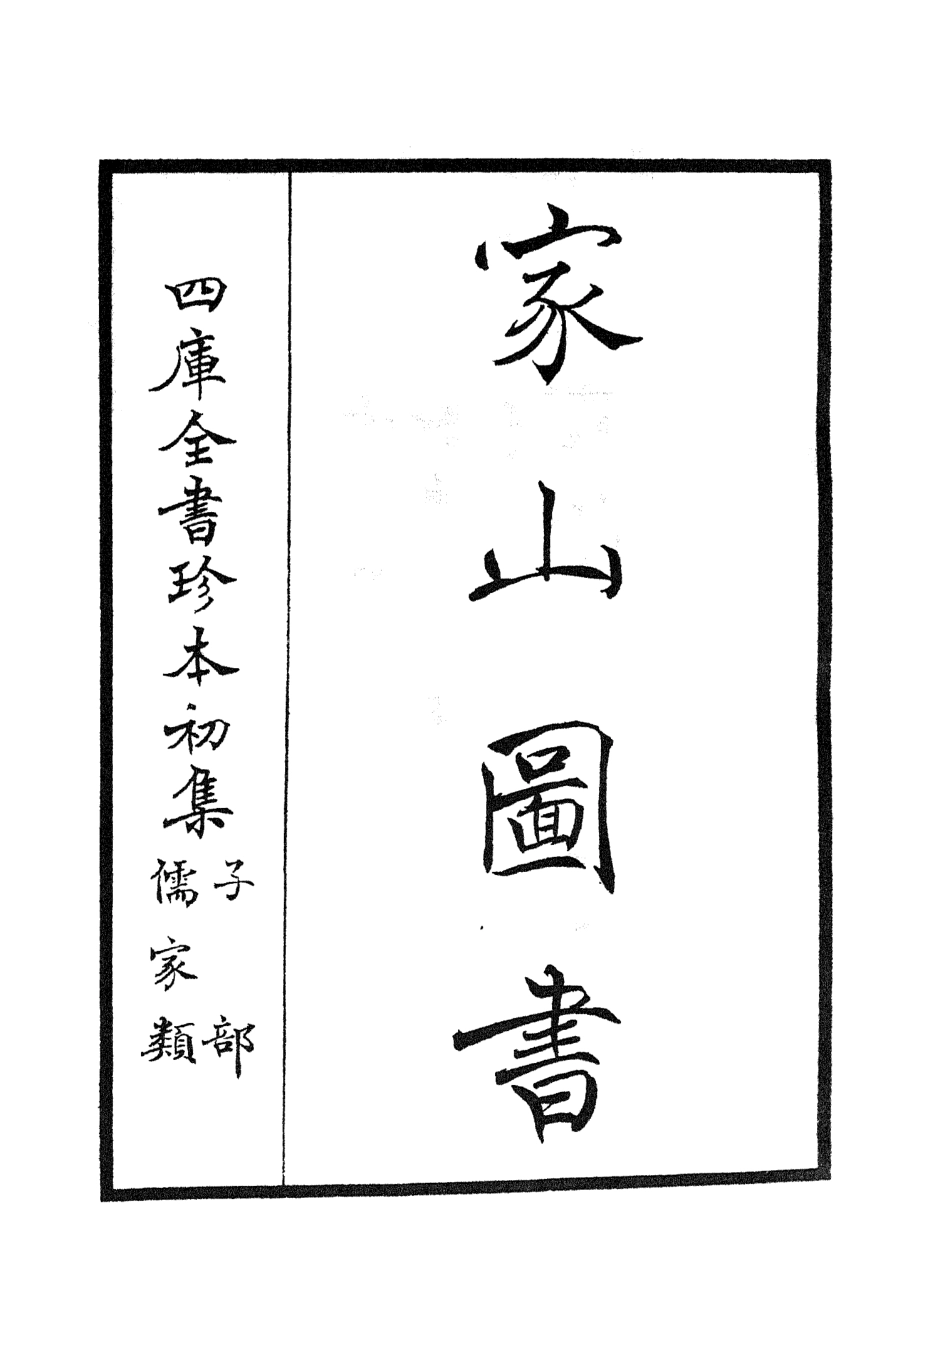 家山圖書
四庫全書珍本初集
子部
儒家類